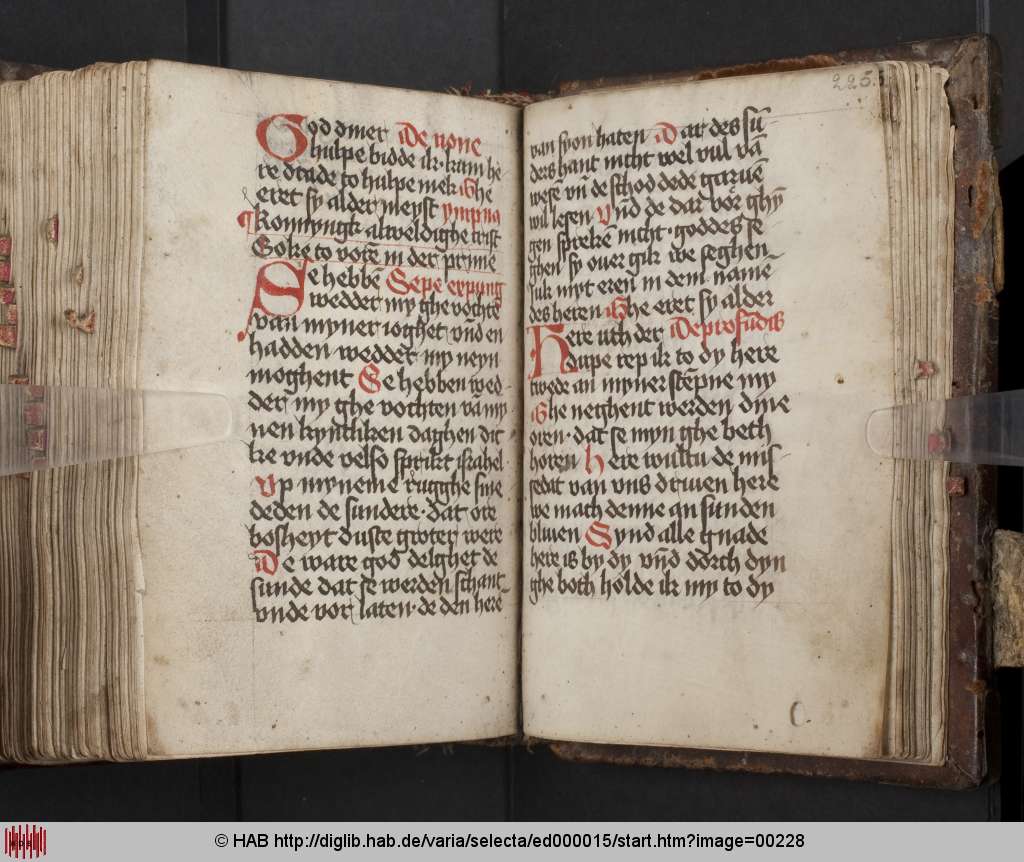 God dmer De none
hulpe bidde ik · kum he
re drade to hulpe mek Ghe
eret sy alder meyst ympna
konnyngk alweldighe trist
Soke to votē in der prime
Se hebbē Sepe expung
weddet my ghe vochtē
van myner ioghet vn̄d en
hadden weddet my neyn
moghent Se hebben wed
der my ghe vochten vā my
nen kyntliken daghen dit
ke vnde velso sprikt israhel
Vp myneme rugghe sme
deden de sundere · dat ore
bosheyt duste groter were
De ware god delghet de
sunde dat se werden schant
vnde vor laten · de den here
225.
van syon haten Dat des sū
ders hant nicht wel vul vā
wese vn̄ de schod dede garuē
wil lesen Vn̄d de dar vōr ghȳ
gen sprekē nicht · goddes se
ghen sy ouer gik we seghen
juk myt eren in dem namē
des heren Ghe eret sy alder
Here uth der De profūdis
dupe rep ik to dy here
twede an myner stēpne my
Ghe neghent werden dine
oren · dat se myn ghe beth
horen Here wultu de mis
sedat van vns driuen here
we mach denne an sunden
bliuen Synd alle gnade
here is by dy vn̄d dorch dyn
ghe both holde ik my to dy
© HAB http://diglib.hab.de/varia/selecta/ed000015/start.htm?image=00228